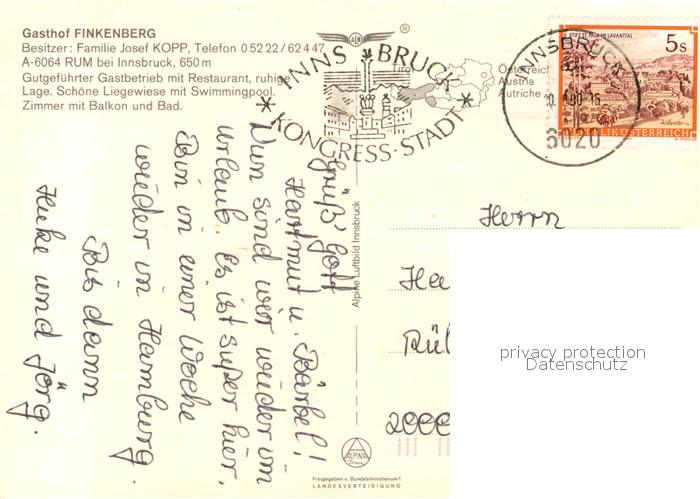 Gasthof FINKENBERG
Besitzer: Familie Josef KOPP, Telefon 0 52 22 / 62 4 47
A-6064 RUM bei Innsbruck, 650 m
Gutgeführter Gastbetrieb mit Restaurant, ruhige
Lage. Schöne Liegewiese mit Swimmingpool.
Zimmer mit Balkon und Bad.
INNSBRUCK
KONGRESS-STADT
Tirol
Österreich
Austria
Autriche
INNSBRUCK
6020
STIFT ST. PAUL IM LAVANTTAL
5s
REPUBLIK ÖSTERREICH
Grüß Gott
Hartmut u. Bärbel!
Nun sind wir wieder im
Urlaub. Es ist super hier.
Bin in einer Woche
wieder in Hamburg.
Bis dann
Heike und Jörg.
Alpine Luftbild Innsbruck
Herrn
Ha
Rül
2000
privacy protection
Datenschutz
ALPINA
Druck
Freigegeben v. Bundesministerium f.
LANDESVERTEIDIGUNG